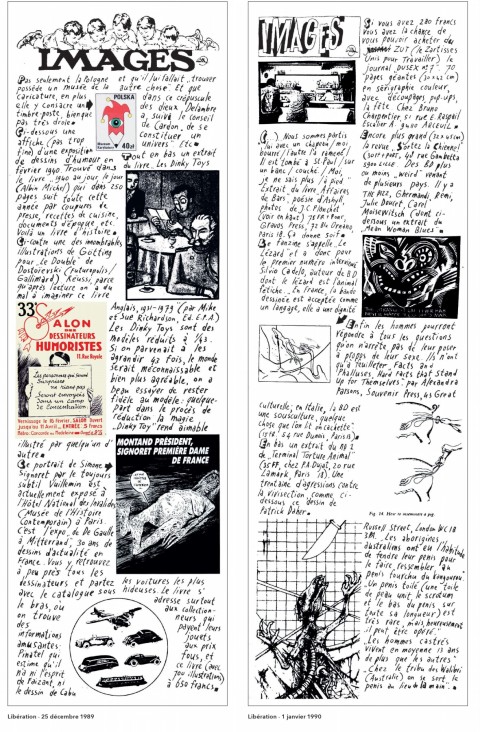 IMAGES
Pas seulement la Pologne
possède un musée de la
caricature, en plus
elle y consacre un
timbre-poste, bien que
pas très drôle.
POLSKA
40zł
Ci-dessous une
affiche (pas trop
fine) d'une exposition
de dessins d'humour en
février 1940. Trouvé dans
le livre 1940 au jour le jour
(Albin Michel) qui dans 250
pages suit toute cette
année par coupures de
presse, recettes de cuisine,
documents d'époque etc.
Voilà un livre d'histoire.
Ci-contre une des
illustrations de Götting
pour "Le Double" de
Dostoïevski (Futuropolis/
Gallimard). Réussi, parce
qu'après lecture on a du
mal à imaginer ce livre
33e SALON
DES
DESSINATEURS
HUMORISTES
11, Rue Royale
illustré par quelqu'un d'
autre.
Ce portrait de Simone
Signoret par le toujours
subtil Vuillemin est
actuellement exposé à
l'Hôtel National des Invalides
(Musée de l'Histoire
Contemporaine) à Paris.
C'est l'expo "De De Gaulle
à Mitterrand", 30 ans de
dessins d'actualité en
France. Vous y retrouvez
à peu près tous les
dessinateurs et partez
avec le catalogue sous
le bras, où
on trouve
des
informations
amusantes:
Pinatel qui
estime qu'il
n'a ni l'esprit
de Faizant, ni
le dessin de Cabu
et qu'il lui fallait trouver
autre chose. Et que
dans ce crépuscule
des dieux, Delambre
a suivi le conseil
de Cardon, de se
constituer un
univers. Etc.
Tout en bas un extrait
du livre Les Dinky Toys
Anglais, 1931-1979 (par Mike
et Sue Richardson, Ed. E.P.A.)
Les Dinky Toys sont des
modèles réduits à 1/43.
Si on parvenait à les
agrandir 43 fois, le monde
serait méconnaissable et
bien plus agréable, on a
beau essayer de rester
fidèle au modèle: quelque-
part dans le procès de
réduction la magie
"Dinky Toy" rend aimable
MONTAND PRÉSIDENT,
SIGNORET PREMIÈRE DAME
DE FRANCE
les voitures les plus
hideuses. Le livre s'
adresse surtout
aux collection-
neurs qui
payent leurs
jouets
aux prix
fous, et
ce livre (avec
700 illustrations)
à 650 francs.
Libération - 25 décembre 1989
IMAGES
Si vous avez 280 francs
vous avez la chance de
vous pouvoir acheter
ZUT (le Zartisses
Unis pour Travailler) le
journal DUSEX N° 7. 70
pages géantes (30x42 cm)
en sérigraphie couleur,
avec découpages, pop-ups,
la fête. Chez Bruno
Charpentier, 51 rue E. Raspail
Escalier A 94110 ARCUEIL.
(...) Nous sommes partis
lui avec un clapeau / moi
bourré / l'autre la remeil /
Il est tombé à St Paul / sur
un blanc / couché / Moi,
je ne sais plus la fin.
Extrait du livre Affaires
de Bars, poésie d'Ashyl,
photos de J.C. Planchet
(voir en haut)
Gravos Press, 72 Bd Ornano,
Paris 18. Ça donne soif.
Ce fanzine s'appelle Le
Lézard et a donc pour
le premier numéro interviewé
Silvio Cadelo, auteur de BD
dont le lézard est l'animal
fétiche. "En France, la bande
dessinée est acceptée comme
un langage, elle a une dignité
culturelle; en Italie, la BD est
une sousculture, quelque
chose que l'on lit en cachette"
En bas un extrait du No 2
de "Terminal Torture Animal"
(35 FF, chez P.A. Dujat, 20 rue
Lamark, Paris 18). Une
trentaine d'agressions contre
la vivisection, comme ci-
dessous ce dessin de
Patrick Daher.
Encore plus grand (30x45 cm)
la revue "Sortez la Chienne"
(30F+port, 40F, rue Gambetta
59000 LILLE. Des BD plus
ou moins "weird" venant
de plusieurs pays. Il y a
THE PIZZ, Ghermandi, Remi,
Julie Doucet, Carel
Moiseiwitsch (dont ci-
dessous un extrait du
"Mean Woman Blues".
Enfin les hommes pourront
répondre à tous les questions
qu'on n'arrête pas de leur poser
à propos de leur sexe. Ils n'ont
qu'à feuilleter "Facts and
Phalluses, Hard Facts that Stand
Up for Themselves" par Alexandra
Parsons, Souvenir Press, 43 Great
Russell Street, London WC1B
3PA. "Les aborigènes
australiens ont eu l'habitude
de fendre leur penis pour
le faire ressembler au
penis fourchu du kangourou."
"Un penis voilé (une toile
de peau unit le scrotum
et le bas du penis sur
toute sa longueur) est
très rare, mais heureusement
il peut être opéré".
"Les hommes castrés
vivent en moyenne 13 ans
de plus que les autres".
"Chez le tribu des Walibri
(Australie) on se sert le
penis au lieu de la main".
Libération - 1 janvier 1990